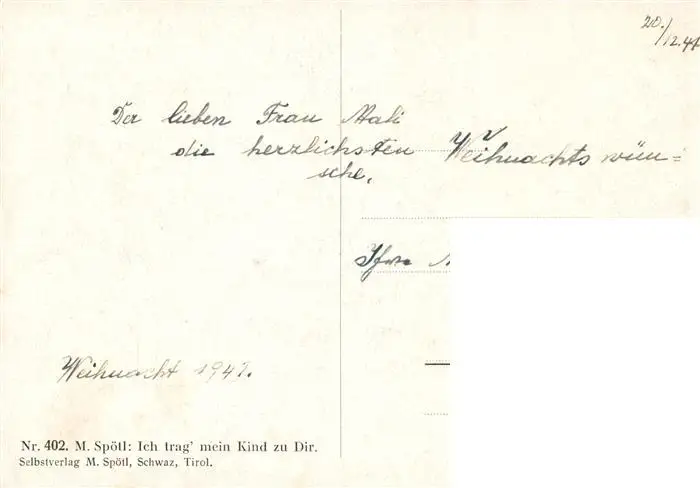 20./12.41
Der lieben Frau Mali
die herzlichsten Weihnachtswün=
sche.
Ihre
Weihnacht 1941.
Nr. 402. M. Spötl: Ich trag' mein Kind zu Dir.
Selbstverlag M. Spötl, Schwaz, Tirol.